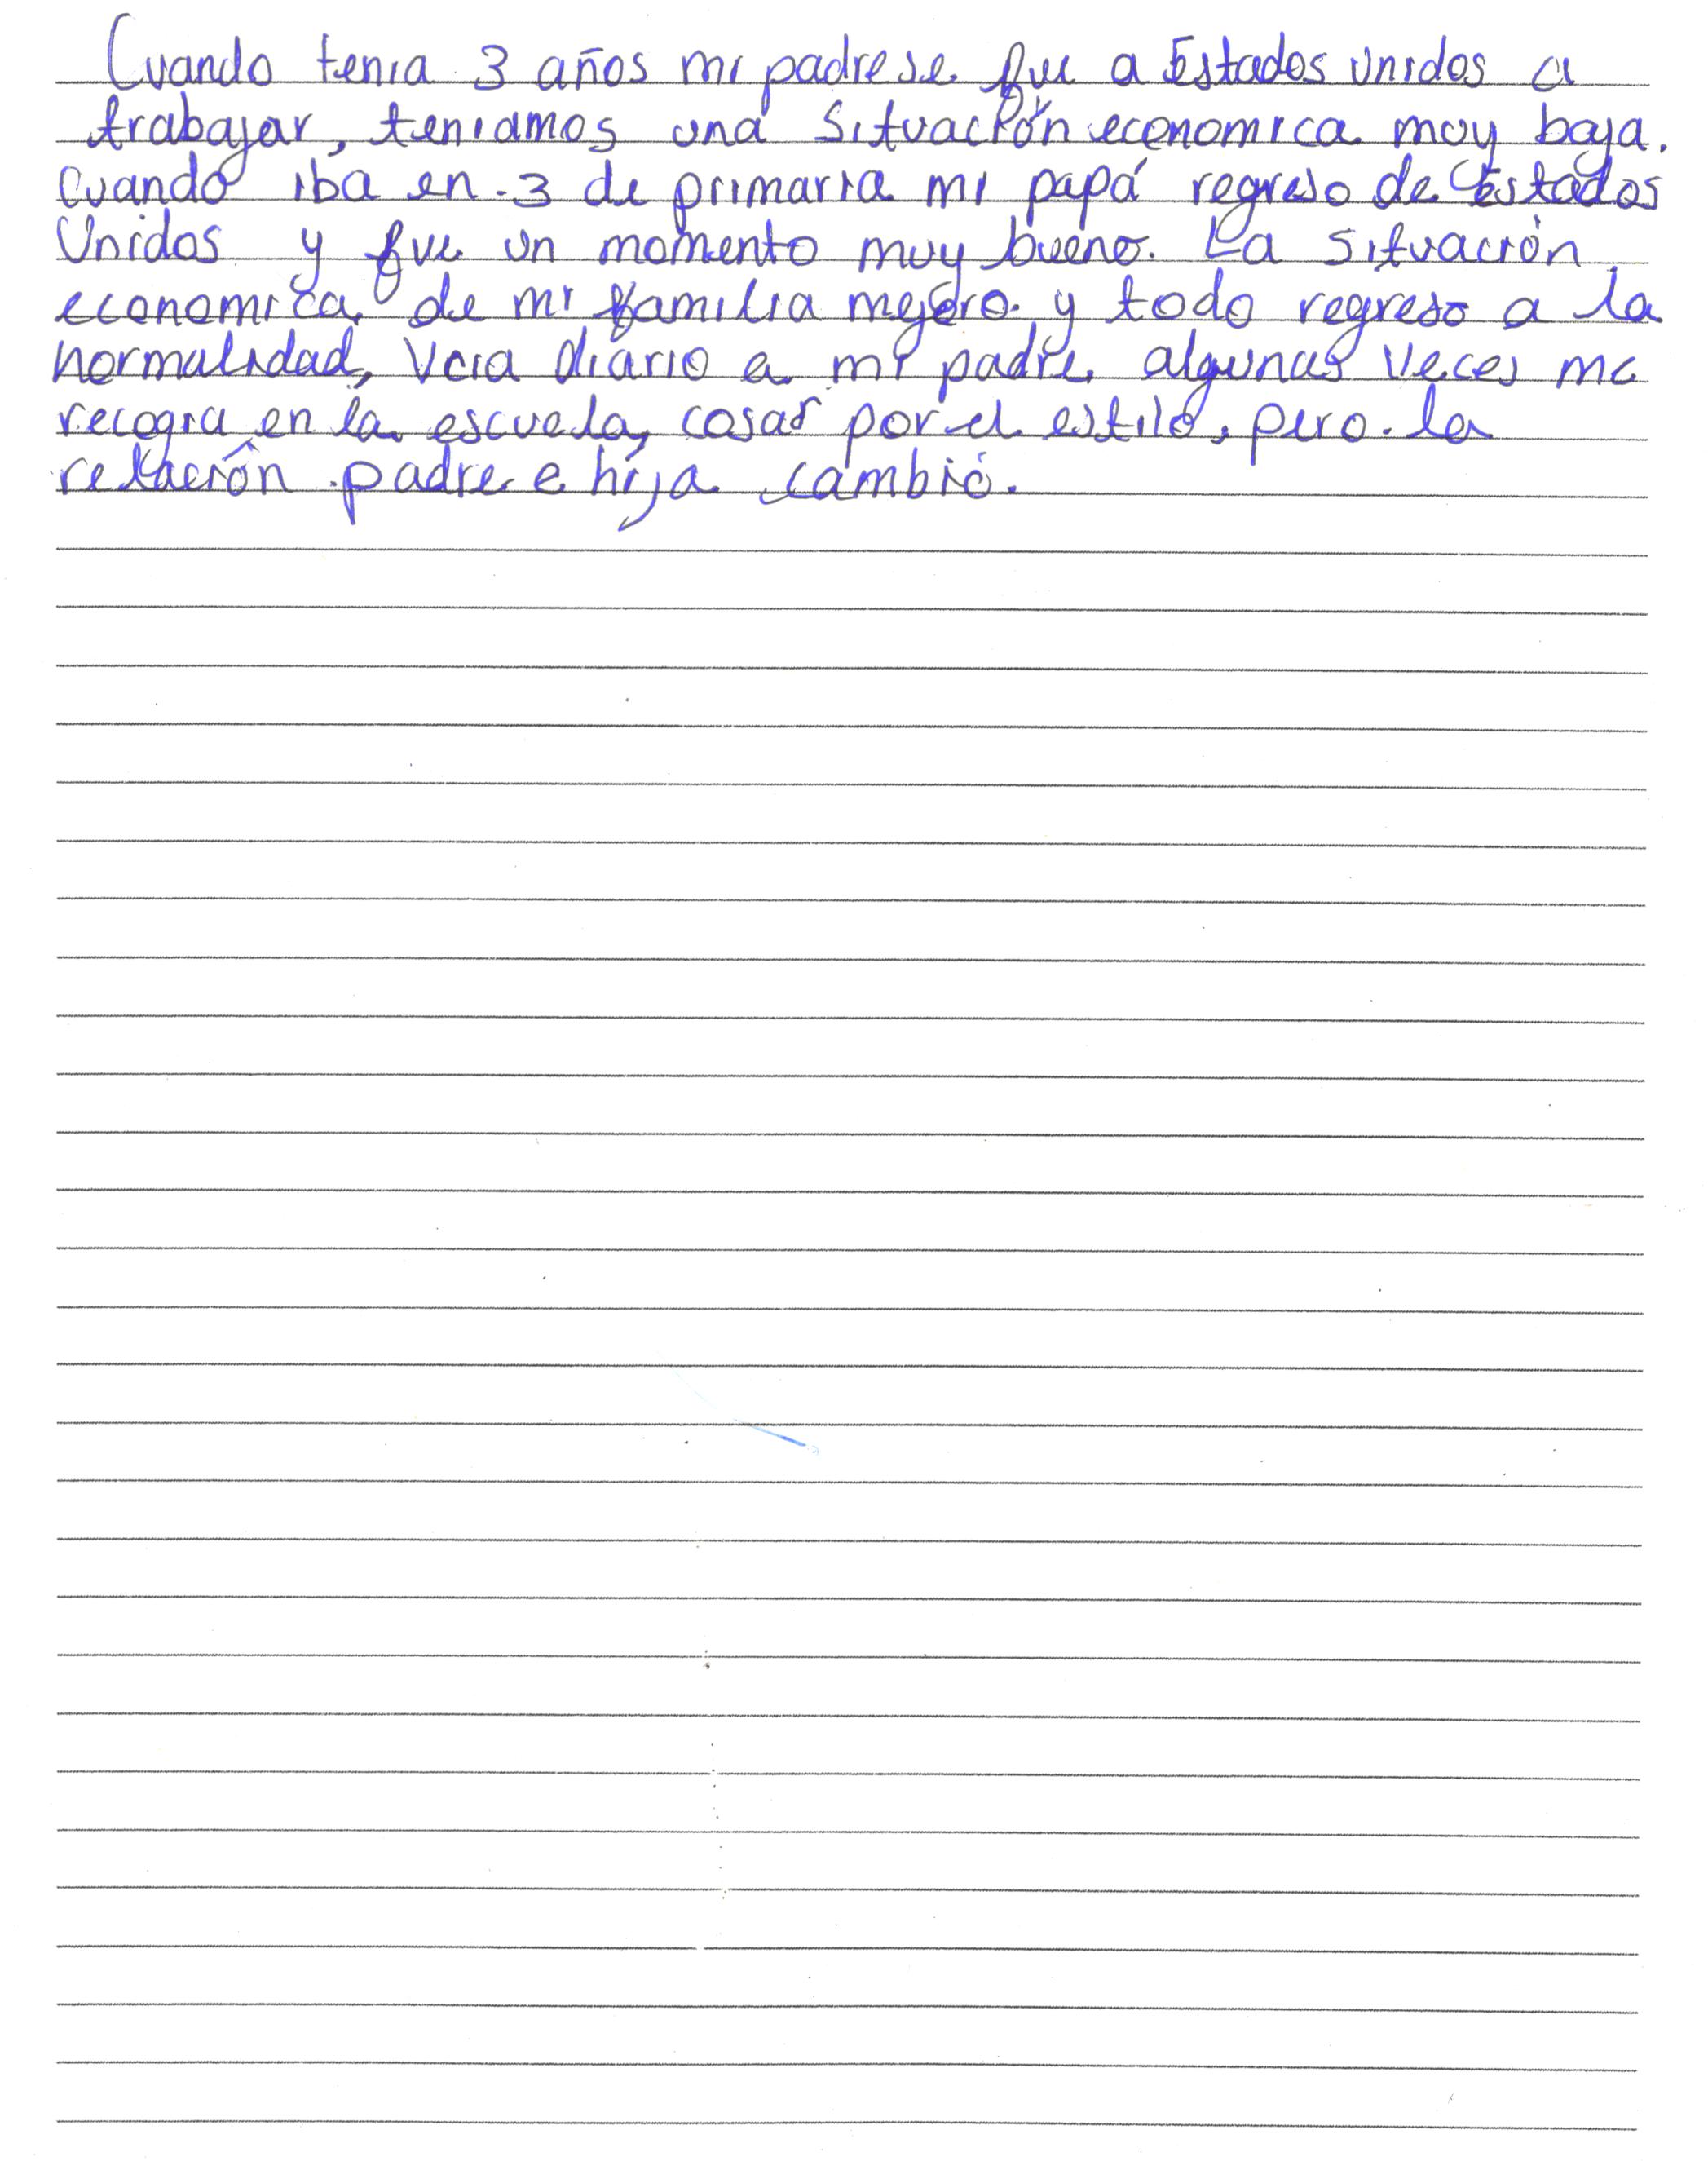 Cuando tenia 3 años mi padre se fue a Estados Unidos a
trabajar, teniamos una situación economica muy baja.
Cuando iba en 3 de primaria mi papá regreso de Estados
Unidos y fue un momento muy bueno. La situación
economica de mi familia mejoro y todo regreso a la
normalidad, veia diario a mi padre algunas veces me
recogia en la escuela, cosas por el estilo, pero la
relación padre e hija cambió.